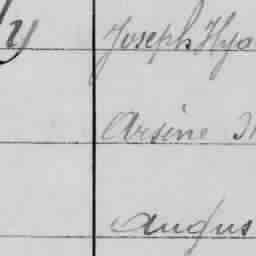 y Joseph Hya
Arsène
Angus